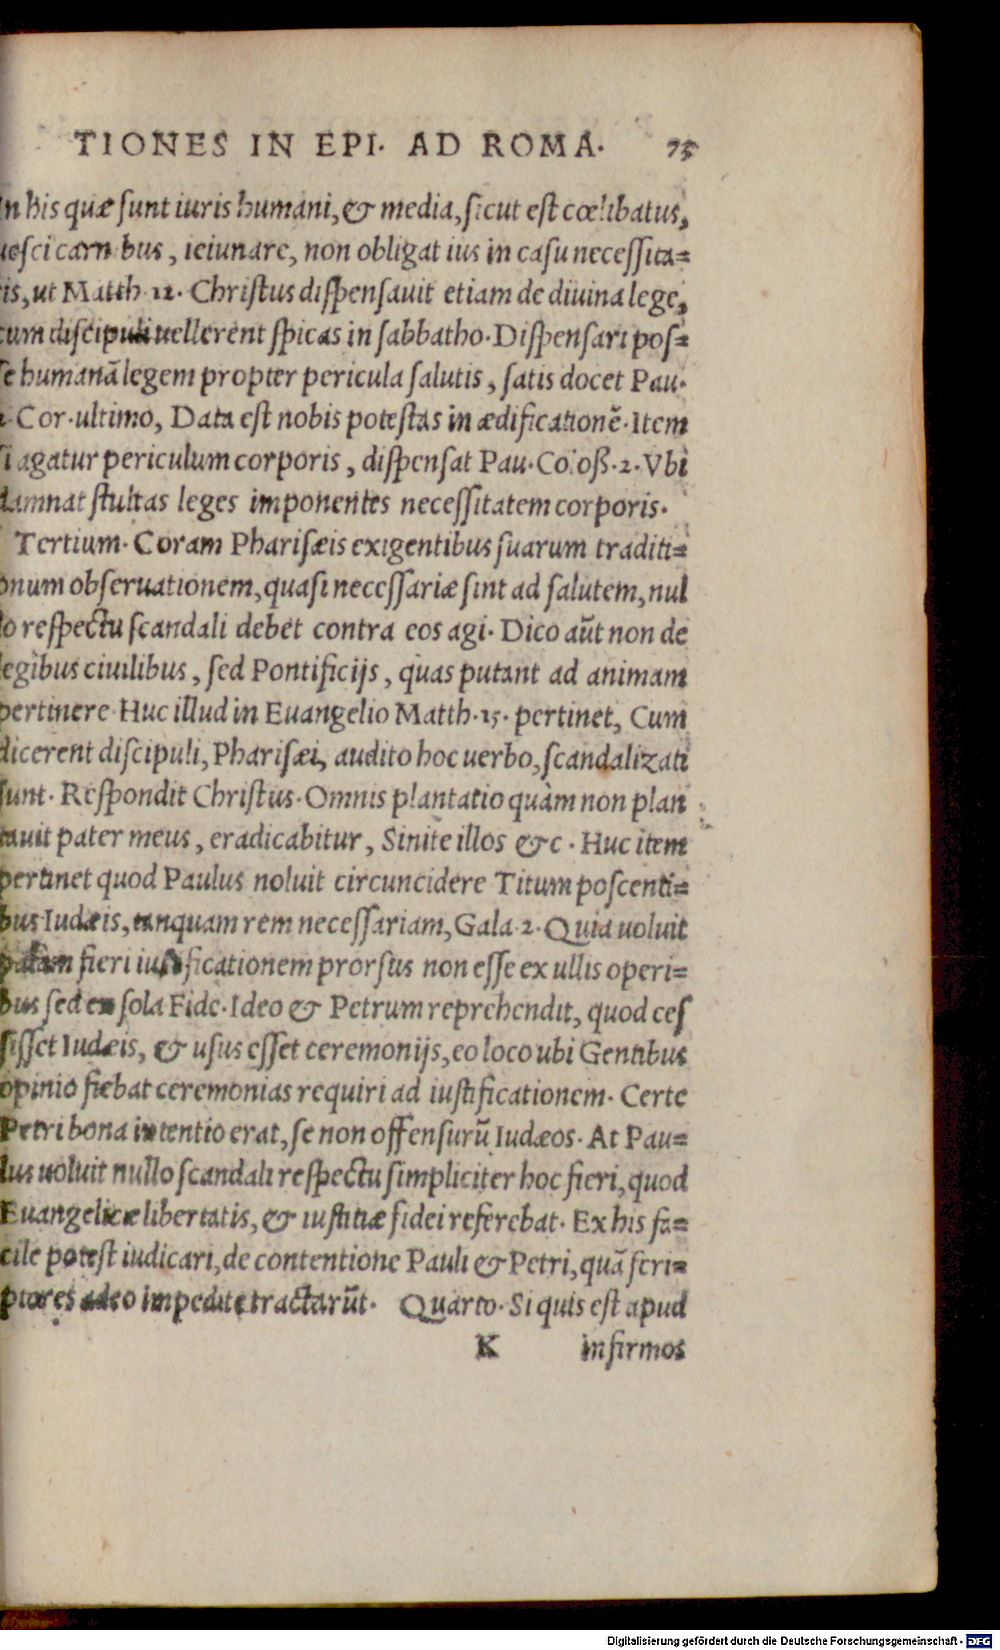 TIONES IN EPI. AD ROMA. 75
In his quæ sunt iuris humani, & media, sicut est cœlibatus,
uesci carn bus, ieiunare, non obligat ius in casu necessita=
tis, ut Matth. 12. Christus dispensauit etiam de diuina lege,
cum discipuli uellerent spicas in sabbatho. Dispensari pos=
se humanā legem propter pericula salutis, satis docet Pau.
2. Cor. ultimo, Data est nobis potestas in ædificationē. Item
si agatur periculum corporis, dispensat Pau. Coloß. 2. Vbi
damnat stultas leges imponentes necessitatem corporis.
Tertium. Coram Pharisæis exigentibus suarum traditi=
onum obseruationem, quasi necessariæ sint ad salutem, nul
lo respectu scandali debet contra eos agi. Dico aūt non de
legibus ciuilibus, sed Pontificijs, quas putant ad animam
pertinere. Huc illud in Euangelio Matth. 15. pertinet, Cum
dicerent discipuli, Pharisæi, audito hoc uerbo, scandalizati
sunt. Respondit Christus. Omnis plantatio quàm non plan
tauit pater meus, eradicabitur, Sinite illos &c. Huc item
pertinet quod Paulus noluit circuncidere Titum poscenti=
bus Iudæis, tanquam rem necessariam, Gala. 2. Quia uoluit
palam fieri iustificationem prorsus non esse ex ullis operi=
bus sed ex sola Fide. Ideo & Petrum reprehendit, quod ces
sisset Iudæis, & usus esset ceremonijs, eo loco ubi Gentibus
opinio fiebat ceremonias requiri ad iustificationem. Certe
Petri bona intentio erat, se non offensurū Iudæos. At Pau=
lus uoluit nullo scandali respectu simpliciter hoc fieri, quod
Euangelicæ libertatis, & iustitiæ fidei referebat. Ex his fa=
cile potest iudicari, de contentione Pauli & Petri, quā scri=
ptores adeo impedite tractarūt. Quarto. Si quis est apud
K infirmos
Digitalisierung gefördert durch die Deutsche Forschungsgemeinschaft - DFG